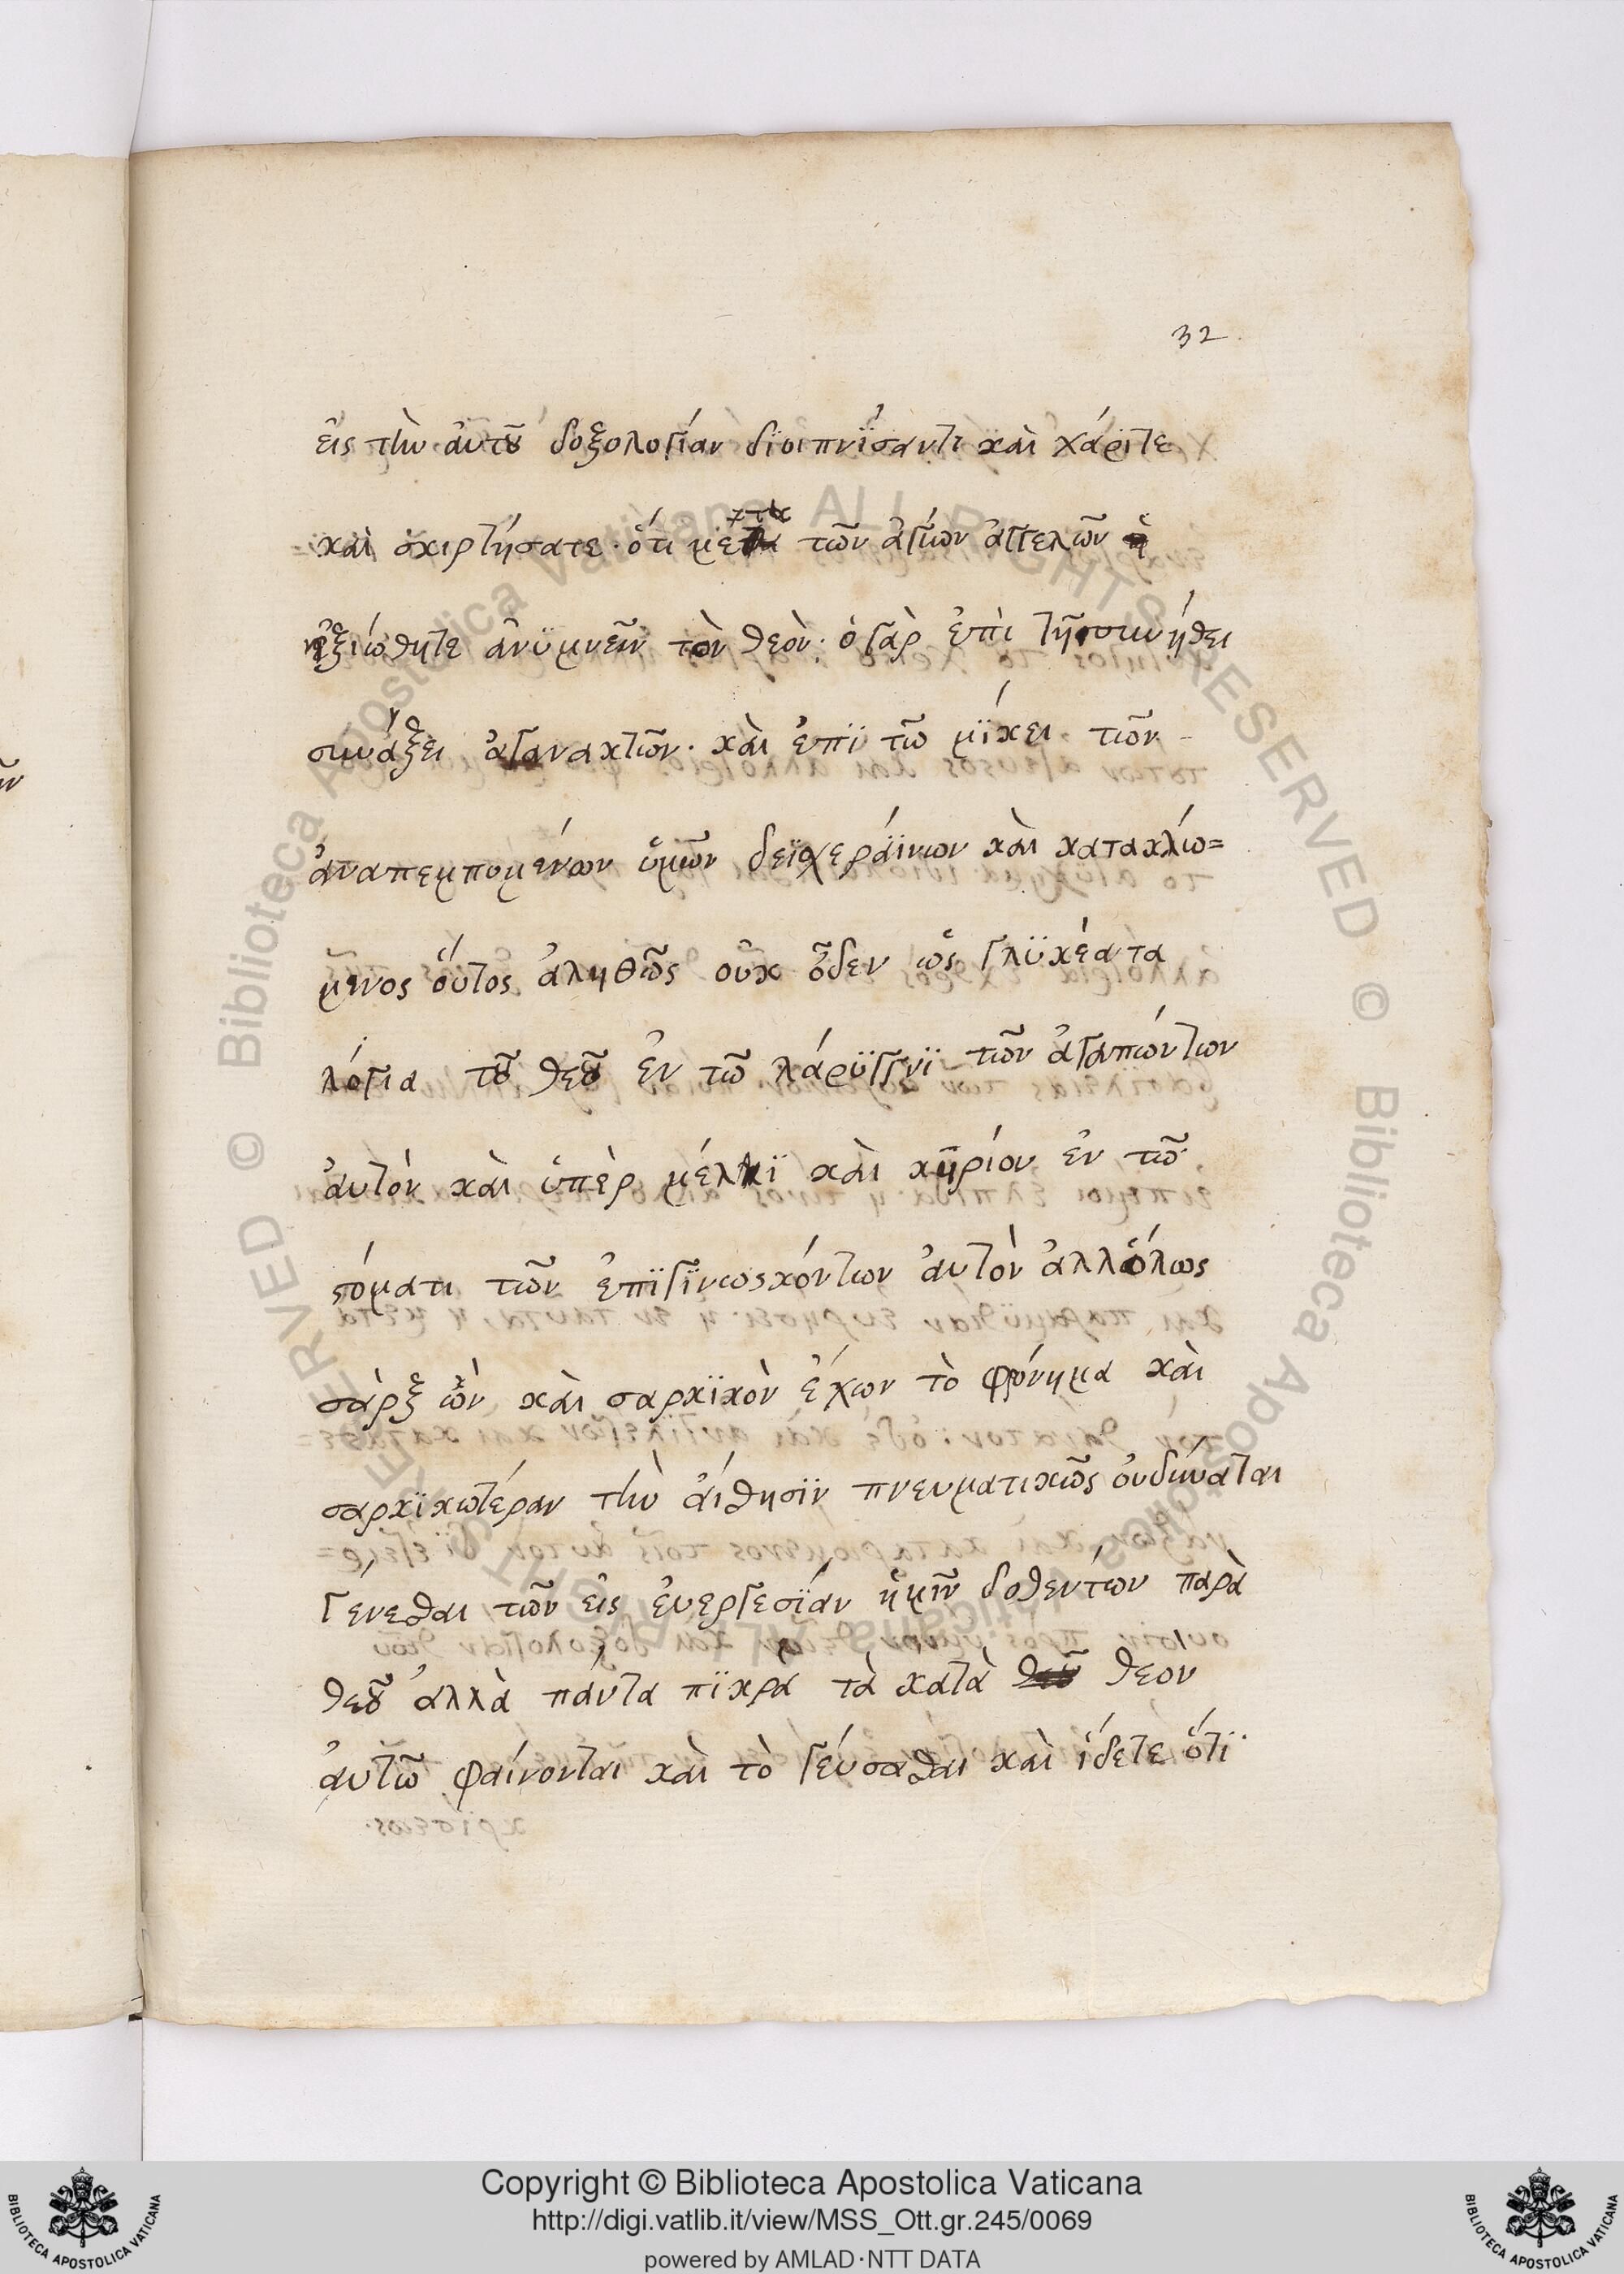 32
ἐις τὴν ἀυτοῦ δοξολογίαν δϊοιπνΐσαντι καὶ χάρϊτε
καὶ σκιρτήσατε· ὅτι μετὰ τῶν ἁγίων ἀγγελῶν
ἠξιώθητε ἀνϋμνεῖν τὸν θεὸν· ὁ γὰρ ἐπὶ τῇ συνήθει
συνάξει ἀγανακτῶν· καὶ ἐπῒ τῶ μΐκει τῶν
ἀναπεμπομένων ὕμνων δεϊχεράϊνων καὶ κατακλΐω=
μενος οὗτος ἀληθῶς οὐκ οἶδεν ὡς γλϋκέα τα
λόγια τοῦ θεοῦ ἐν τῶ λάρϋγγνϊ τῶν ἀγαπώντων
ἀυτὸν καὶ ὑπὲρ μέλϊ καὶ κηρίον ἐν τῶ
στόματι τῶν ἐπϊγϊνωσκόντων ἀυτὸν ἀλλ' ὅλως
σὰρξ ὢν καὶ σαρκϊκὸν ἔχων τὸ φρόνημα καὶ
σαρκϊκωτέραν τὴν ἀίσθησϊν πνευματικῶς οὐ δύναται
γένεσθαι τῶν εἰς ἐυεργεσΐαν ἡμῖν δοθεντων παρὰ
θεοῦ ἀλλὰ πάντα πϊκρα τὰ κατὰ θεον
ἀυτῶ φαίνονται καὶ τὸ γέυσασθαι καὶ ἴδετε ὅτι
Copyright © Biblioteca Apostolica Vaticana
http://digi.vatlib.it/view/MSS_Ott.gr.245/0069
powered by AMLAD·NTT DATA
BIBLIOTECA APOSTOLICA VATICANA
BIBLIOTECA APOSTOLICA VATICANA